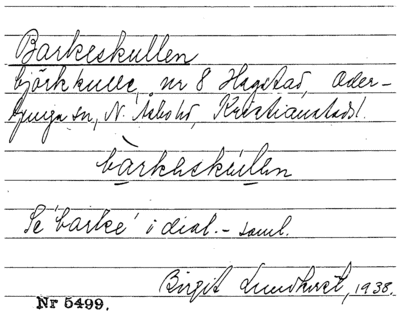 Barkeskullen
björkkulle, nr 8 Hagstad, Oder-
ljunga sn, N. Åsbo hd, Kristianstads l.
bàrkəskúlen
Se 'barke' i dial.-saml.
Birgit Lundkvist, 1938.
Nr 5499.